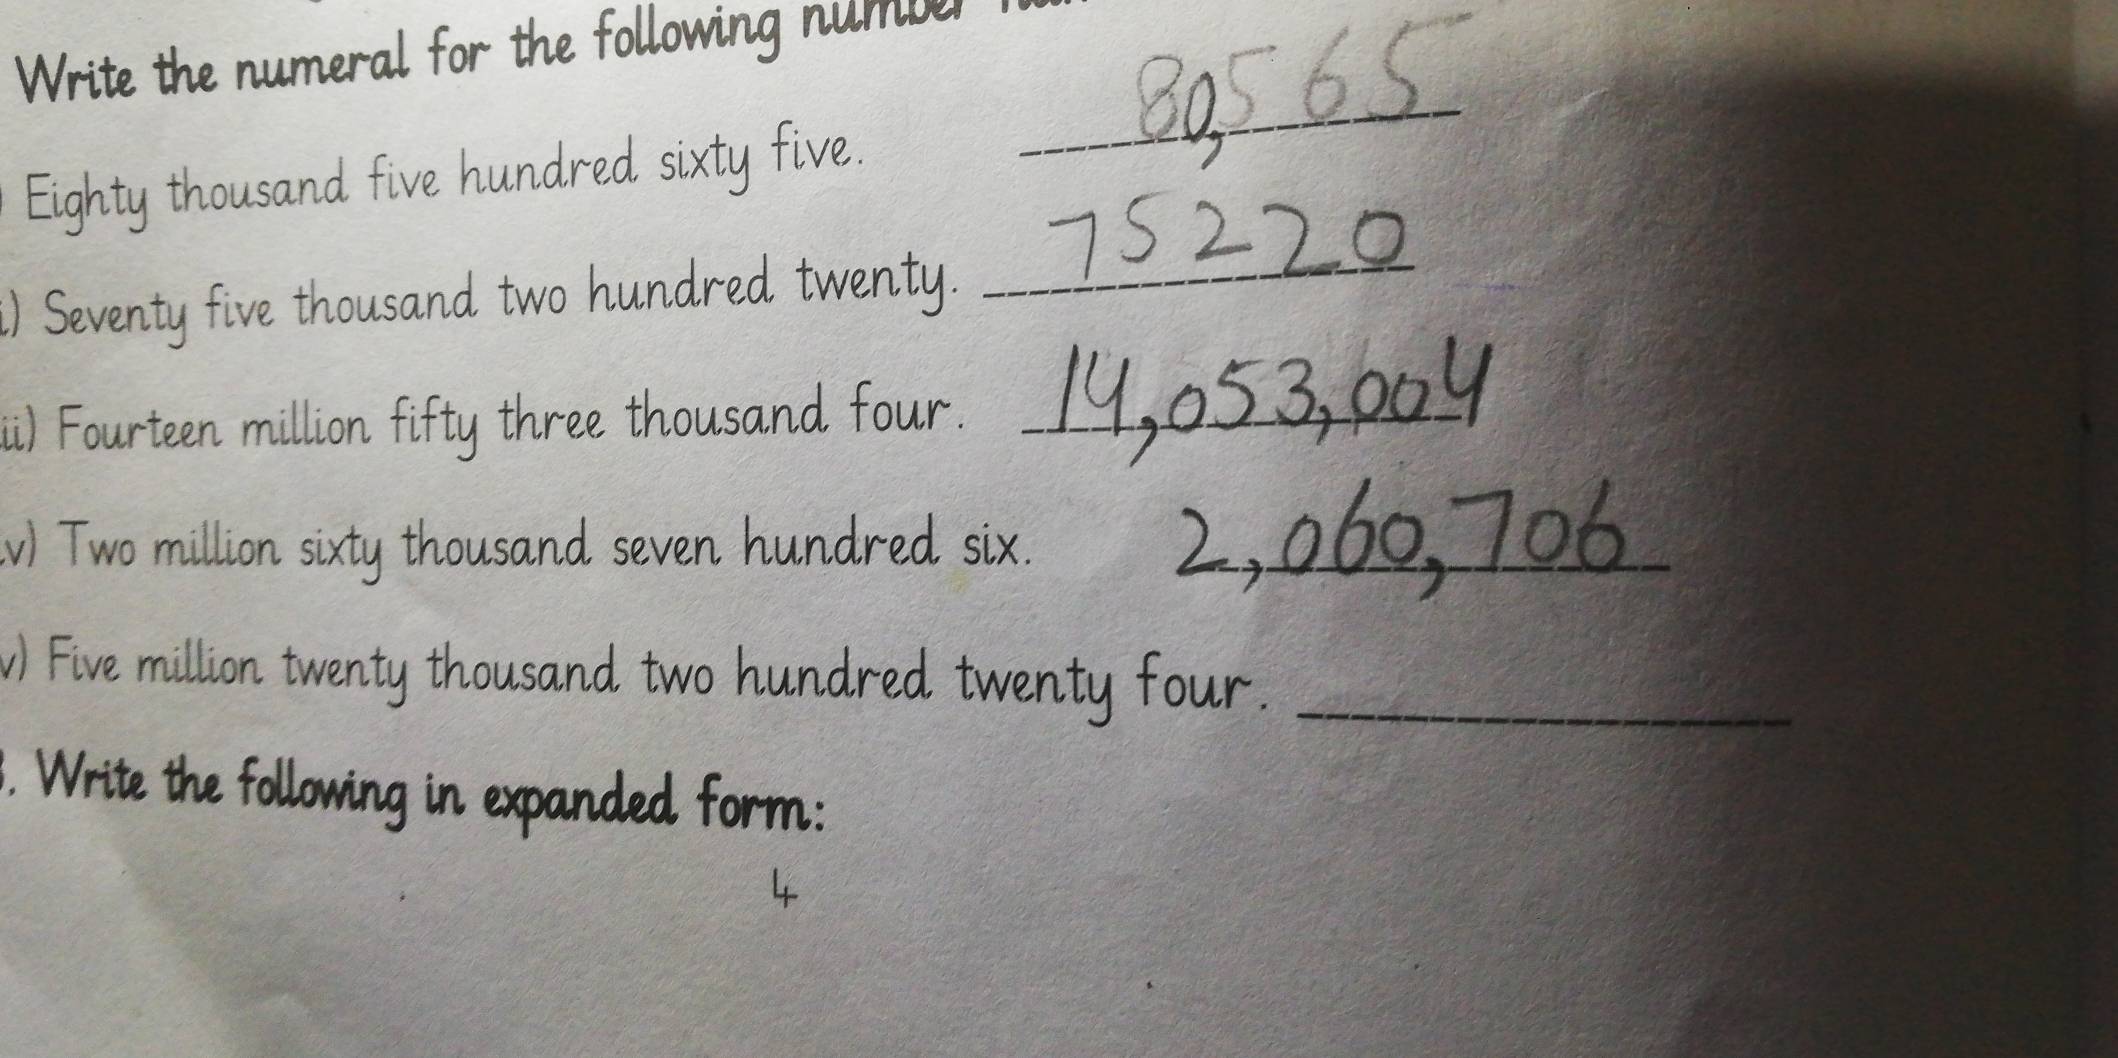 Write the numeral for the following number
) Eighty thousand five hundred sixty five. 80,565
i) Seventy five thousand two hundred twenty. 75220
ii) Fourteen million fifty three thousand four. 14,053,004
iv) Two million sixty thousand seven hundred six. 2,060,706
v) Five million twenty thousand two hundred twenty four.
. Write the following in expanded form:
4